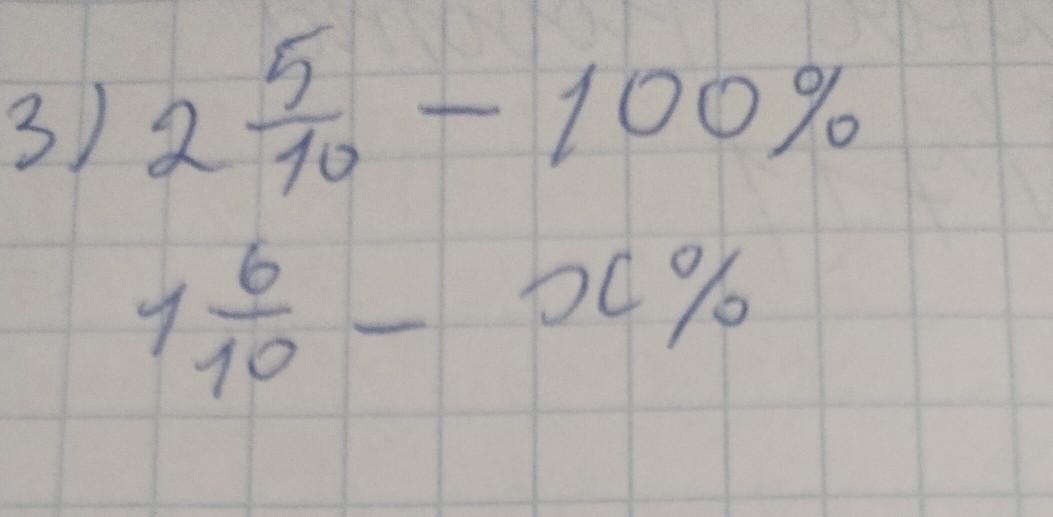 3) 2 5/10 - 100%
1 6/10 - x%